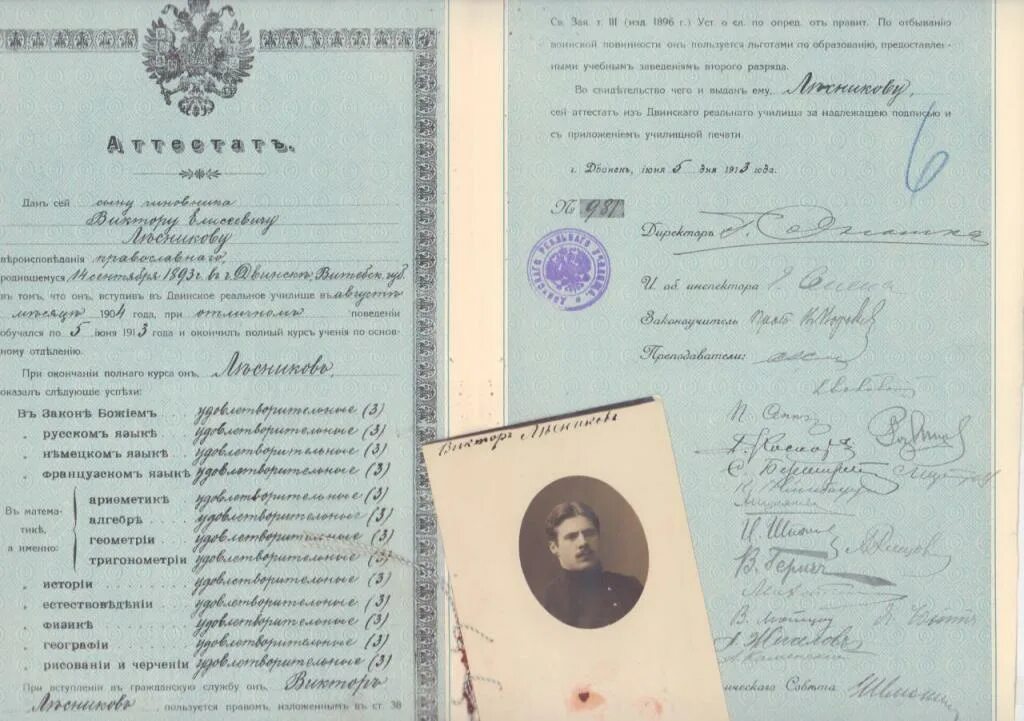 Аттестатъ.
Данъ сей сыну чиновника
Виктору Елисеевичу
Лѣсникову
вѣроисповѣданія православнаго,
родившемуся 14 сентября 1893 г. въ г. Двинскѣ, Витебск. губ.
въ томъ, что онъ, вступивъ въ Двинское реальное училище въ августѣ
мѣсяцѣ 1904 года, при отличномъ поведеніи
обучался по 5 іюня 1913 года и окончилъ полный курсъ ученія по основ-
ному отдѣленію.
При окончаніи полнаго курса онъ, Лѣсниковъ,
оказалъ слѣдующіе успѣхи:
Въ Законѣ Божіемъ удовлетворительные (3)
„ русскомъ языкѣ удовлетворительные (3)
„ нѣмецкомъ языкѣ удовлетворительные (3)
„ французскомъ языкѣ удовлетворительные (3)
Въ матема-
тикѣ,
а именно:
ариѳметикѣ удовлетворительные (3)
алгебрѣ удовлетворительные (3)
геометріи удовлетворительные (3)
тригонометріи удовлетворительные (3)
„ исторіи удовлетворительные (3)
„ естествовѣдѣніи удовлетворительные (3)
„ физикѣ удовлетворительные (3)
„ географіи удовлетворительные (3)
„ рисованіи и черченіи удовлетворительные (3)
При вступленіи въ гражданскую службу онъ, Викторъ
Лѣсниковъ пользуется правомъ, изложеннымъ въ ст. 38
Св. Зак. т. III (изд. 1896 г.) Уст. о сл. по опред. отъ правит. По отбыванію
воинской повинности онъ пользуется льготами по образованію, предоставлен-
ными учебнымъ заведеніямъ второго разряда.
Во свидѣтельство чего и выданъ ему, Лѣсникову,
сей аттестатъ изъ Двинскаго реальнаго училища за надлежащею подписью и
съ приложеніемъ училищной печати.
г. Двинскъ, іюня 5 дня 1913 года.
6
№ 981
Директоръ
И. об. инспектора
Законоучитель Прот.
Преподаватели:
В. Бернъ
А. Жигаловъ
ическаго Совѣта
Викторъ Лѣсниковъ